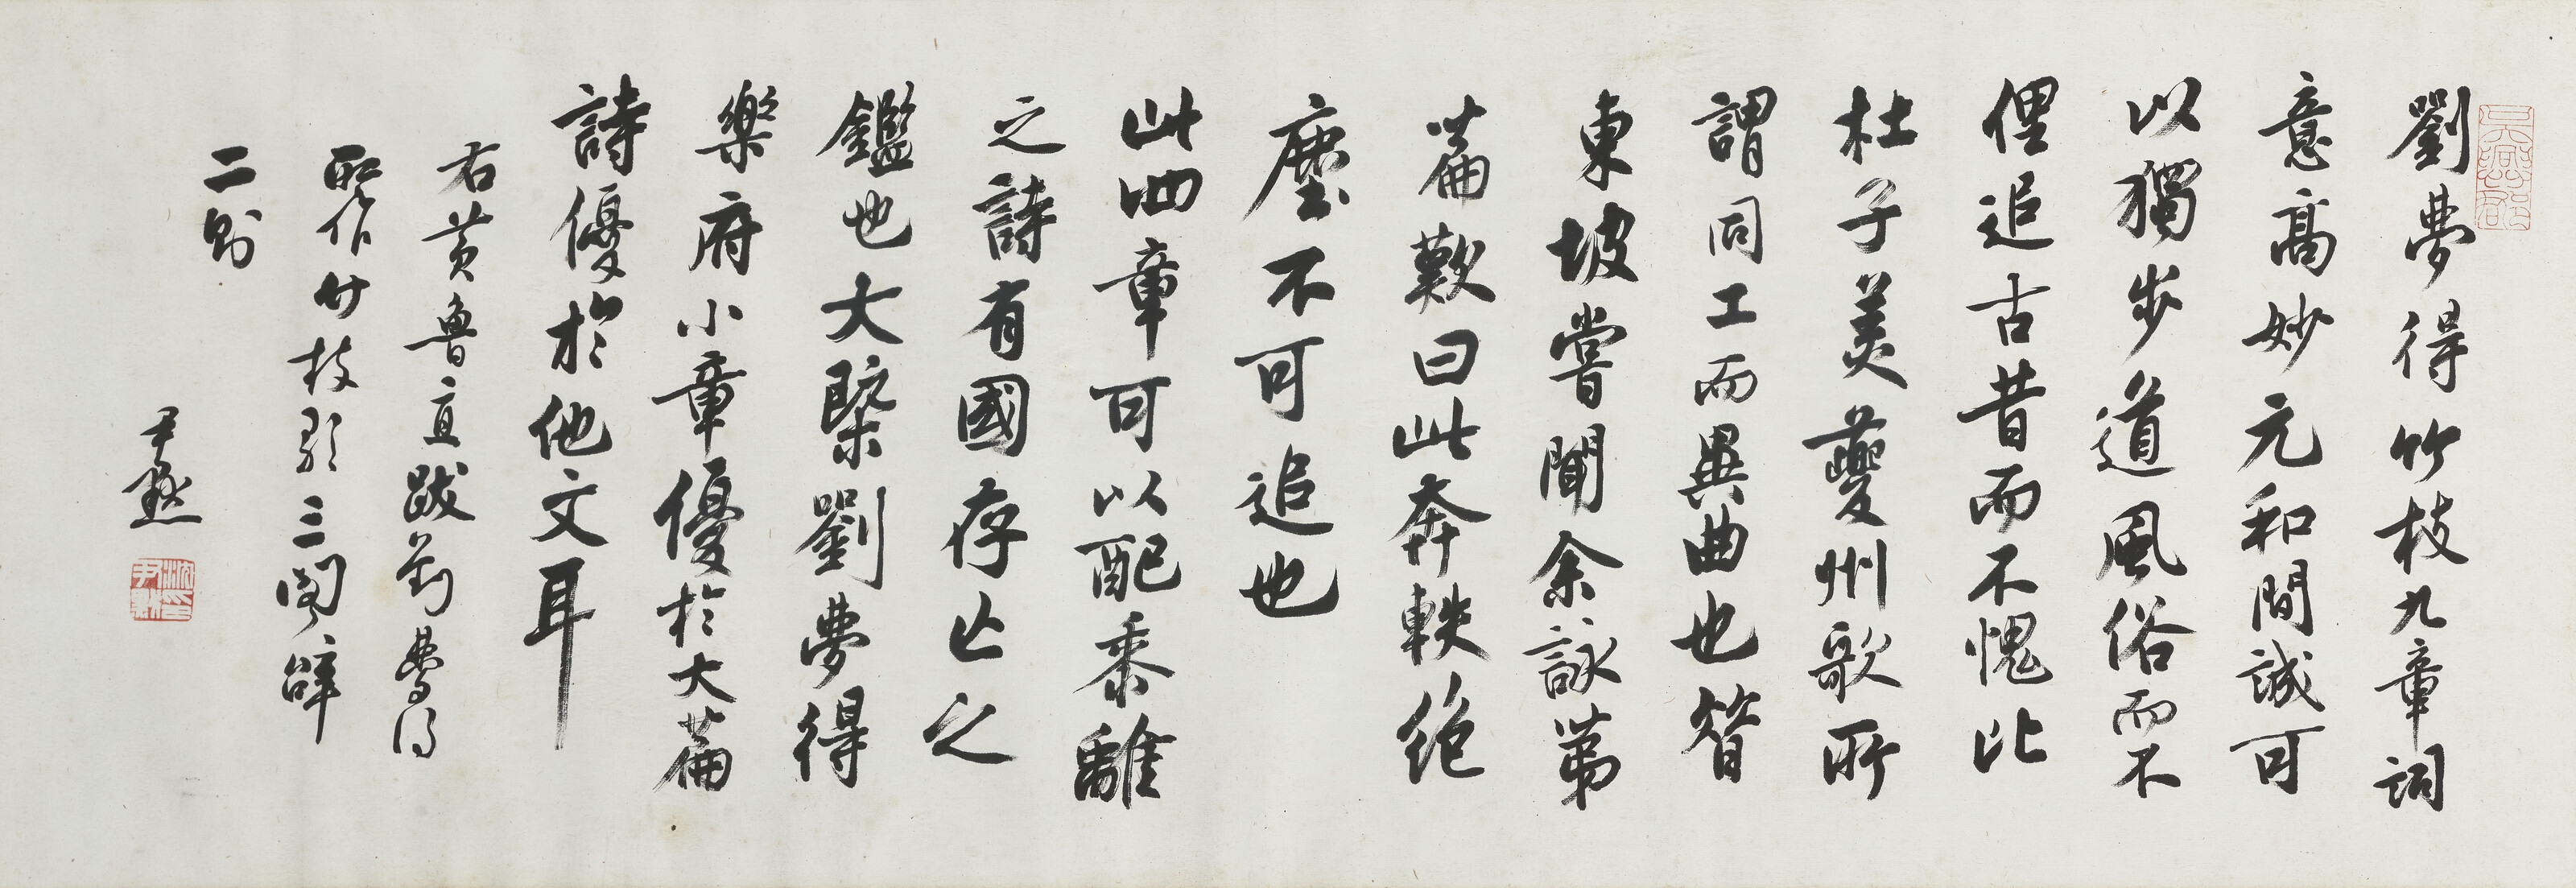 劉夢得竹枝九章詞
意高妙元和間誠可
以獨步道風俗而不
俚追古昔而不愧比
杜子美夔州歌所
謂同工而異曲也昝
東坡嘗聞余詠第
一篇歎曰此奔軼絶
塵不可追也
此四章可以配黍離
之詩有國存亡之
鑑也大槩劉夢得
樂府小章優於大篇
詩優於他文耳
右黄魯直跋劉夢得
所作竹枯歌三閣辭
二則
尹默
沈尹默